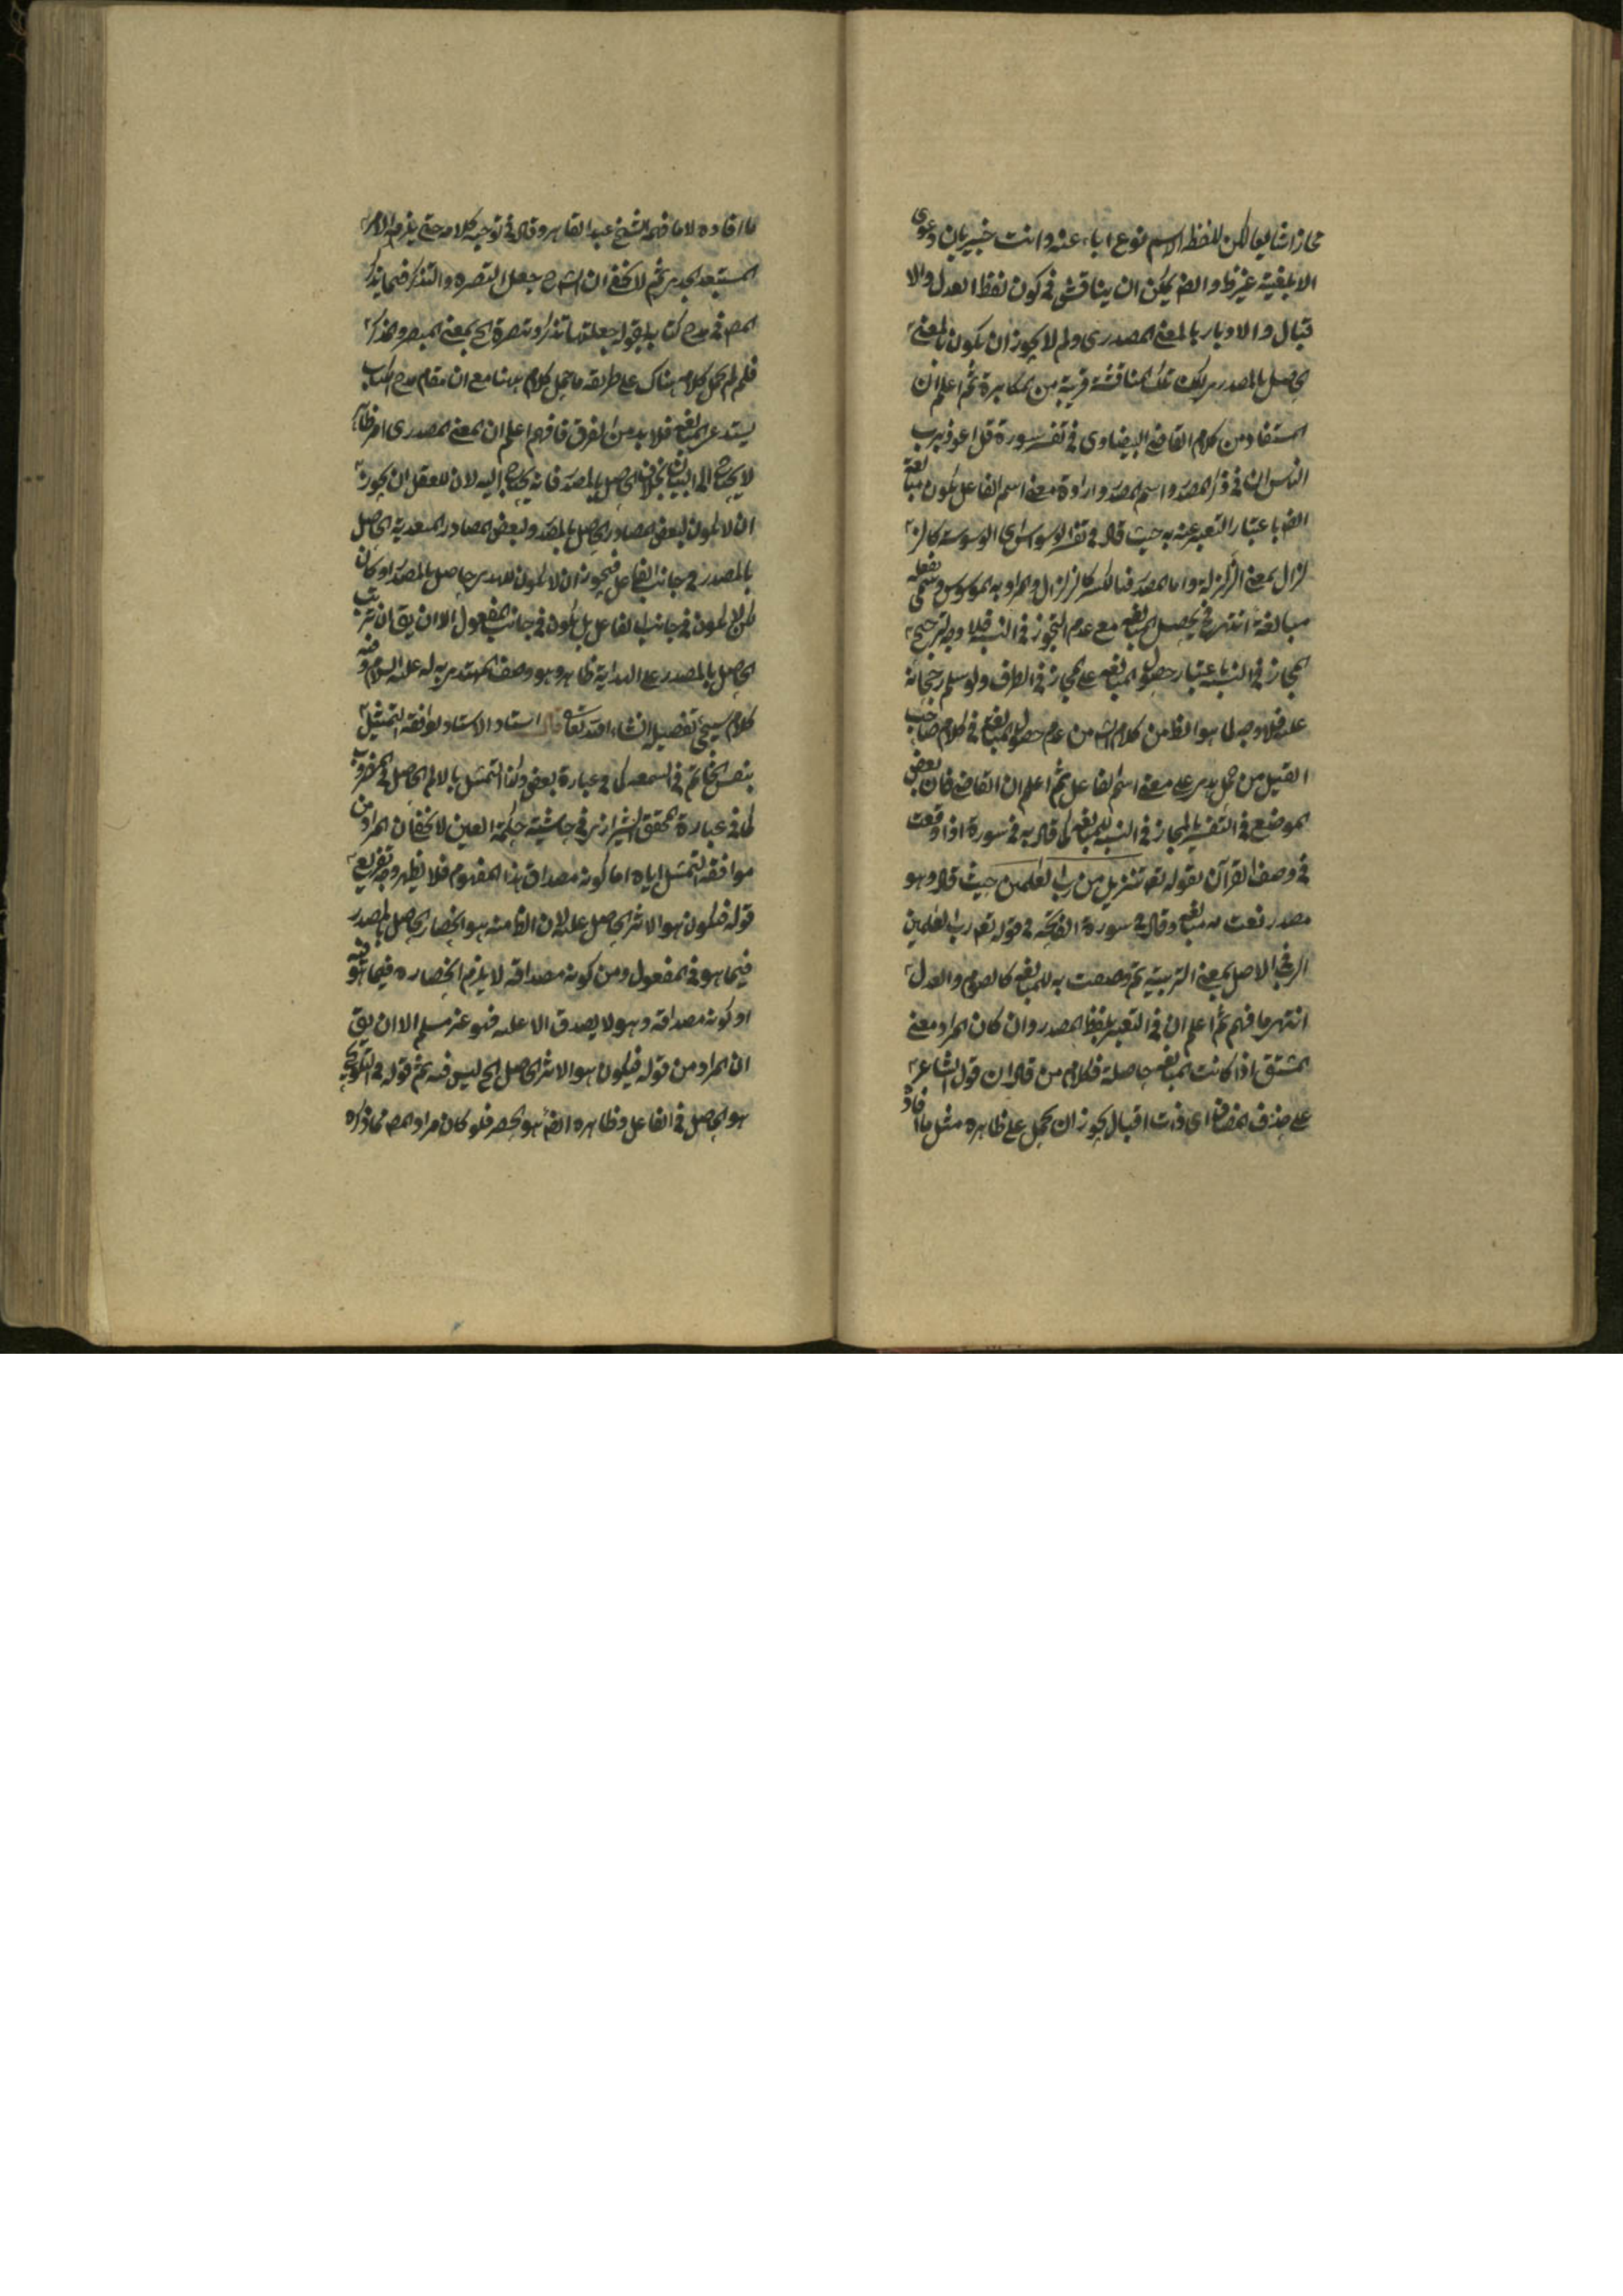 مجازا شايعا لكن للفظ الاسم نوع اباء عنه وانت خبير بان دعوى
الابلغية غير ظ وايضا يمكن ان يناقش في كون لفظ العدل والا
قبال والادبار بالمعنى المصدرى ولم لا يجوز ان يكون بالمعنى
الحاصل بالمصدر لكن تلك المناقشة قريبة من المكابرة ثم اعلم ان
المستفاد من كلام القاضى البيضاوى في تفسير سورة قل اعوذ برب
الناس ان في ذكر المصدر واسم المصدر وارادة معنى اسم الفاعل يكون مبالغة
ايضا باعتبار التعبير عنه به حيث قال في تفسير الوسواس اى الوسوسة كالز
لزال بمعنى الزلزلة واما المصدر فبالكسر كالزلزال والمراد به الموسوس وسمى بفعله
مبالغة انتهى فيحصل المبالغه مع عدم التجوز في النسبه فلا وجه لترجيح
المجاز في النسبه باعتبار حصول المبالغه على المجاز في الطرف ولو سلم رجحانه
عليه فلا وجه لما هو الظ من كلام الش من عدم حصول المبالغه في كلام صاحب
القيل من حمل هدى على معنى اسم الفاعل ثم اعلم ان القاضى فان بعض
الموضع في التفسير بالمجاز في النسبه للمبالغه كما قال به في سورة اذا وقعت
في وصف القرآن بقوله تع تنزيل من رب العلمين حيث قال وهو
مصدر نعت به مبالغه وقال في سورة الفاتحه في قوله تع رب العلمين
الرب في الاصل بمعنى التربية ثم وصفت به للمبالغه كالصوم والعدل
انتهى فافهم ثم اعلم ان في التعبير بلفظ المصدر وان كان المراد معنى
المشتق اذا كانت المبالغه حاصلة فكلام من قال ان قول الشاعر
على حذف المضاف اى ذات اقبال يجوز ان يحمل على ظاهره مثل ما افاد
ما افاده لا ما فهمه الشيخ عبد القاهر وقال في توجيه كلامه حتى يلزمه الامر
المستبعد الجدير ثم لا يخفى ان الش جعل التبصره والتذكر فيما يذكر
المص في مدح كتابه بقوله جعلتها تذكرا وتبصرة الخ بمعنى المبصر والمذكر
فلم لم يحمل كلامه هناك على طريقه ما حمل كلامه ههنا مع ان مقام مدح الكتاب
يستدعى المبالغه فلا بد من الفرق فافهم اعلم ان المعنى المصدرى امر ظاهر
لا يحتاج الى البيان بخلاف الحاصل بالمصدر فانه يحتاج اليه لان للعقل ان يجوز
ان لا يكون لبعض المصادر الحاصل بالمصدر ولبعض المصادر المتعدية الحاصل
بالمصدر في جانب الفاعل فيجوز ان لا يكون للهدى حاصل بالمصدر او كان
لكن لا يكون في جانب الفاعل بل يكون في جانب المفعول الا ان يق ان ترتب
الحاصل بالمصدر على الهداية ظاهر وهو وصف المهتدى به له عليه السلام وفيه
كلام سيجئ تفصيله انشاء الله تعالى قال استاد الاستاد لموافقه التمثيل
بنفس الخاتم في السمع كما في عبارة بعض وكذا التمثيل بالالم الحاصل في المضروب
كما في عبارة المحقق الشيرازى في حاشيته حكمة العين لا يخفى ان المراد من
موافقه التمثيل اياه اما كونه مصداق هذا المفهوم فلا يظهر وجه تفريع
قوله فيكون هو الاثر الحاصل عليه لان الظ منه هو انحصار الحاصل بالمصدر
فيما هو في المفعول ومن كونه مصداقه لا يلزم انحصاره فيما هو فيه
او كونه مصداقه وهو لا يصدق الا عليه فهو غير مسلم الا ان يق
ان المراد من قوله فيكون هو الاثر الحاصل الخ ليس فيه ثم قوله في التلويح
هو الحاصل في الفاعل وظاهره ايضا هو الحصر فلو كان مراد المص مما ذكره